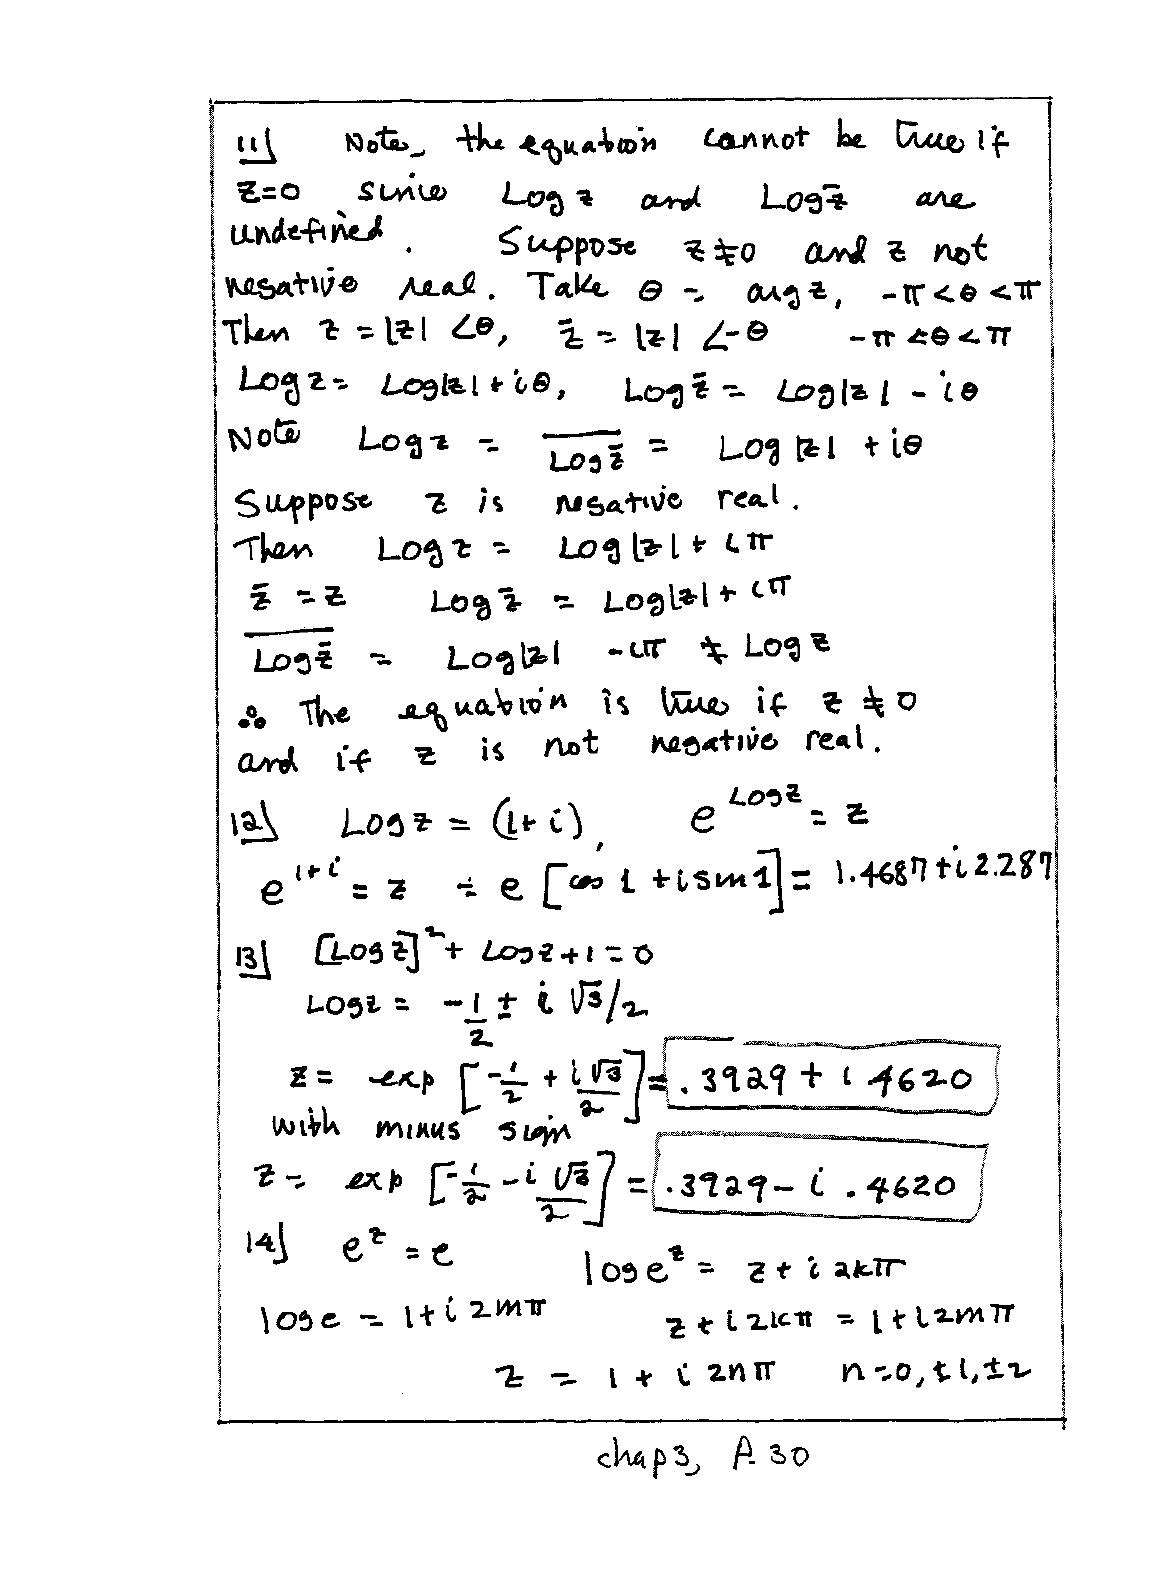 11) Note, the equation cannot be true if
z=0 since Log z and Log z̄ are
undefined. Suppose z≠0 and z not
negative real. Take θ = arg z, -π<θ<π
Then z = |z| ∠θ, z̄ = |z| ∠-θ -π<θ<π
Log z = Log|z| + iθ, Log z̄ = Log|z| - iθ
Note Log z = \overline{Log z̄} = Log |z| + iθ
Suppose z is negative real.
Then Log z = Log |z| + iπ
z̄ = z Log z̄ = Log|z| + iπ
\overline{Log z̄} = Log|z| - iπ ≠ Log z
∴ The equation is true if z ≠ 0
and if z is not negative real.
12) Log z = (1+i), e^{Log z} = z
e^{1+i} = z = e [cos 1 + i sin 1] = 1.4687 + i 2.287
13) [Log z]² + Log z + 1 = 0
Log z = -1/2 ± i √3/2
z = exp [-1/2 + i√3/2] = .3929 + i 4620
with minus sign
z = exp [-1/2 - i √3/2] = .3929 - i .4620
14) e^z = e log e^z = z + i 2kπ
log e = 1 + i 2mπ z + i 2kπ = 1 + i 2mπ
z = 1 + i 2nπ n=0, ±1, ±2
chap 3, p. 30